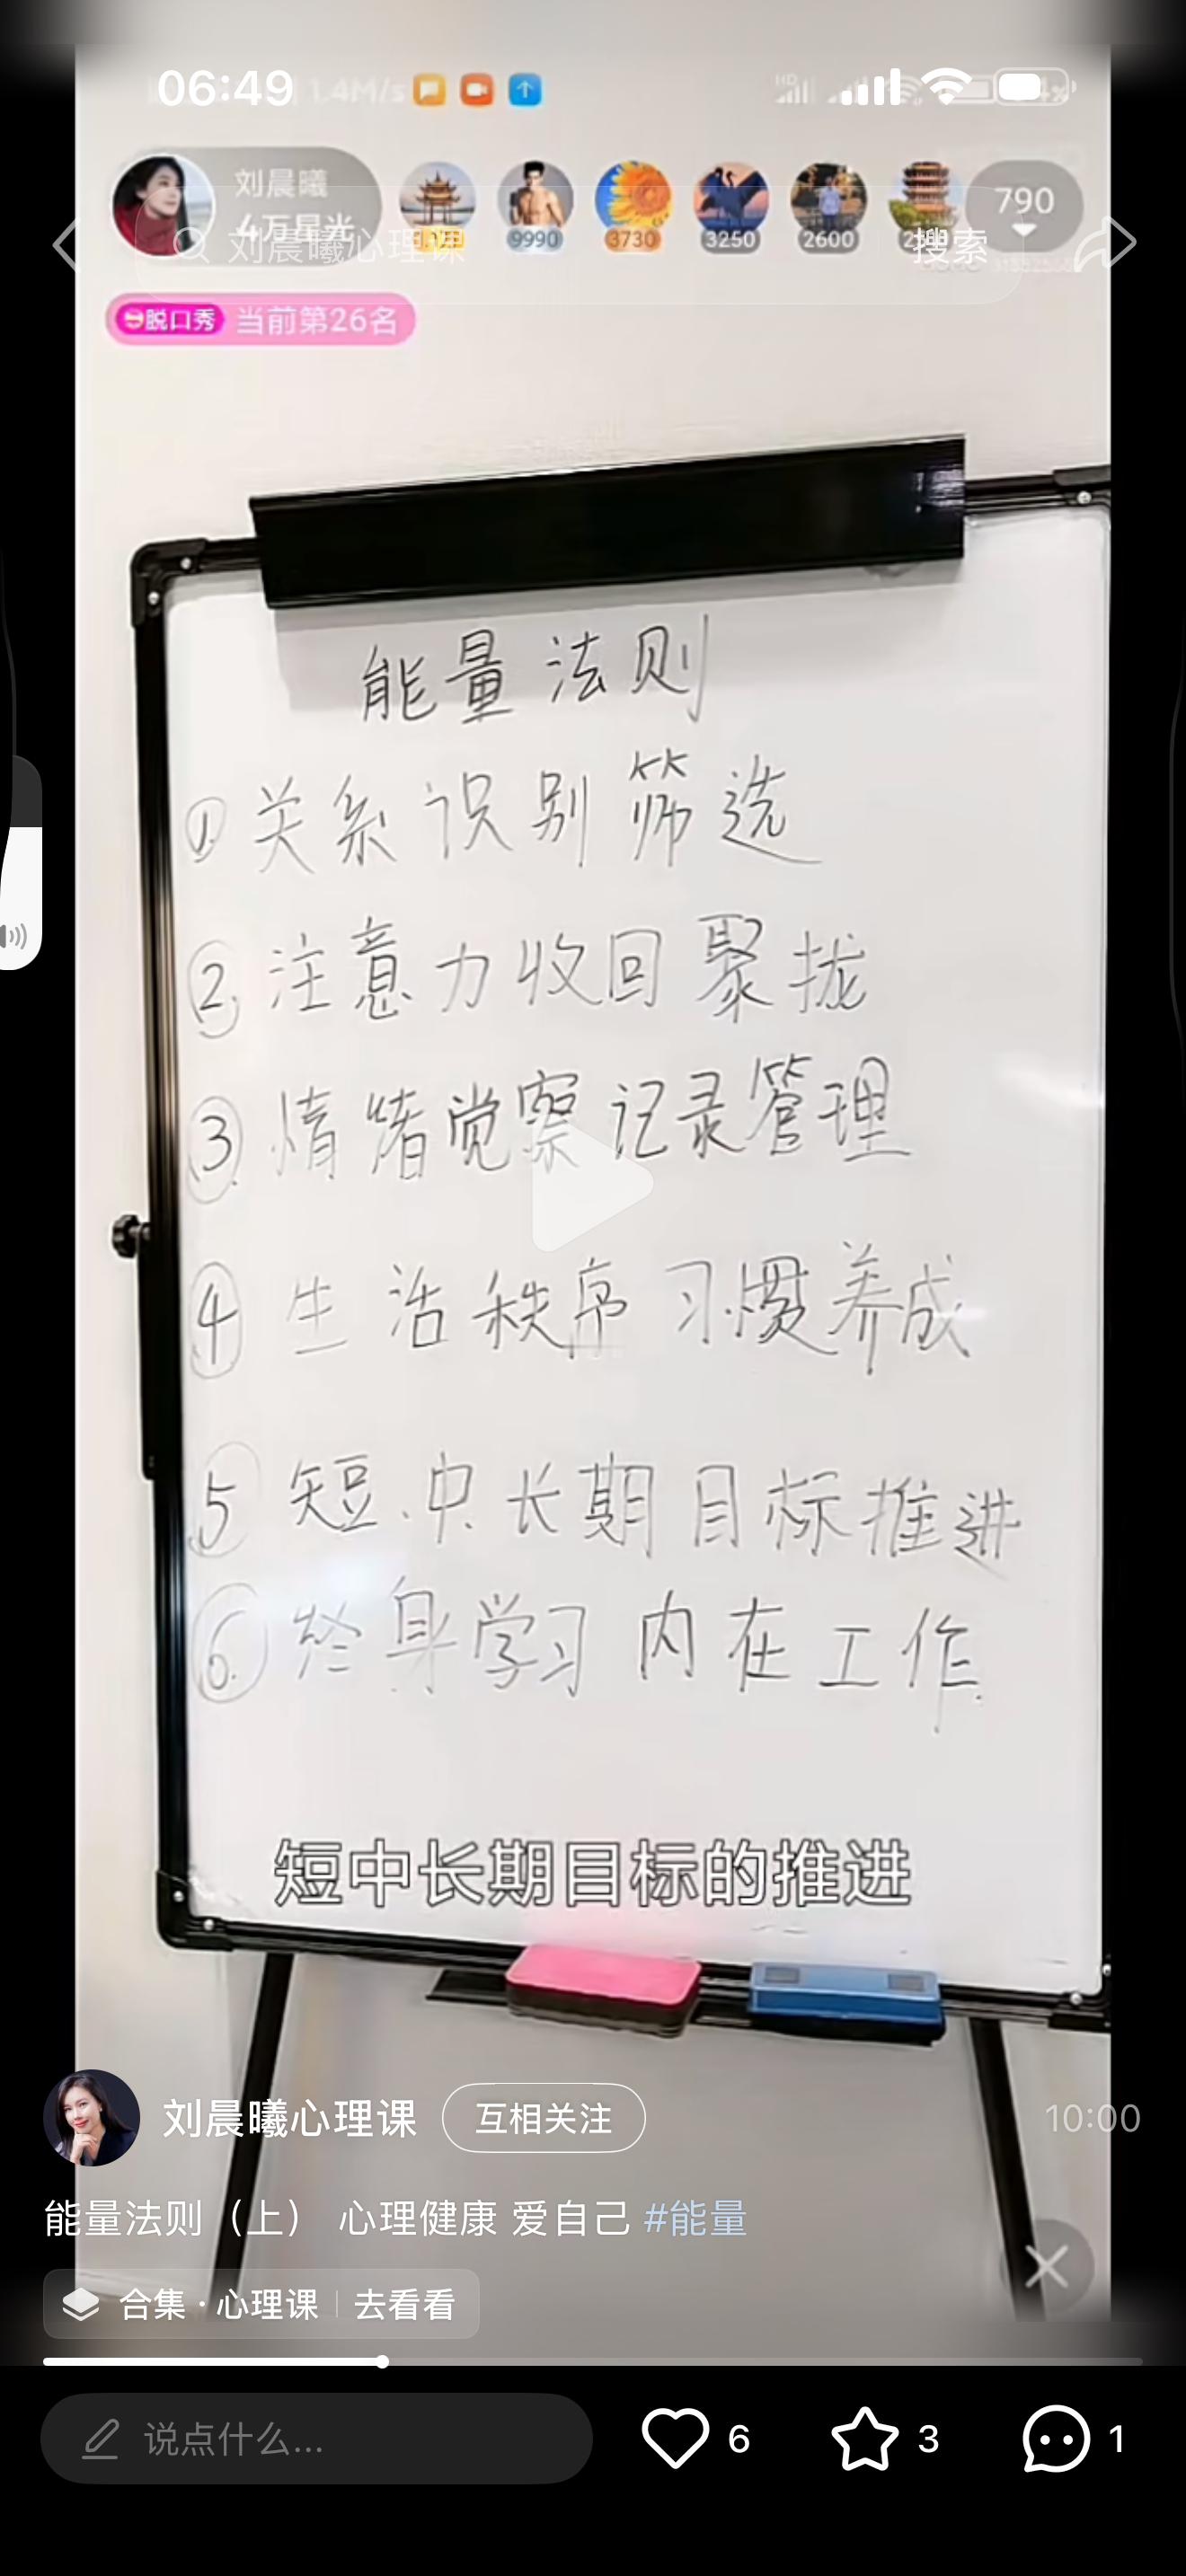 06:49
1.4M/s
刘晨曦
4万星光
9990
3730
3250
2600
790
刘晨曦心理课
搜索
脱口秀 当前第26名
能量法则
①关系识别筛选
②注意力收回聚拢
③情绪觉察记录管理
④生活秩序习惯养成
⑤短、中、长期目标推进
⑥终身学习内在工作
短中长期目标的推进
刘晨曦心理课 互相关注
10:00
能量法则（上） 心理健康 爱自己 #能量
合集·心理课 | 去看看
说点什么...
6
3
1